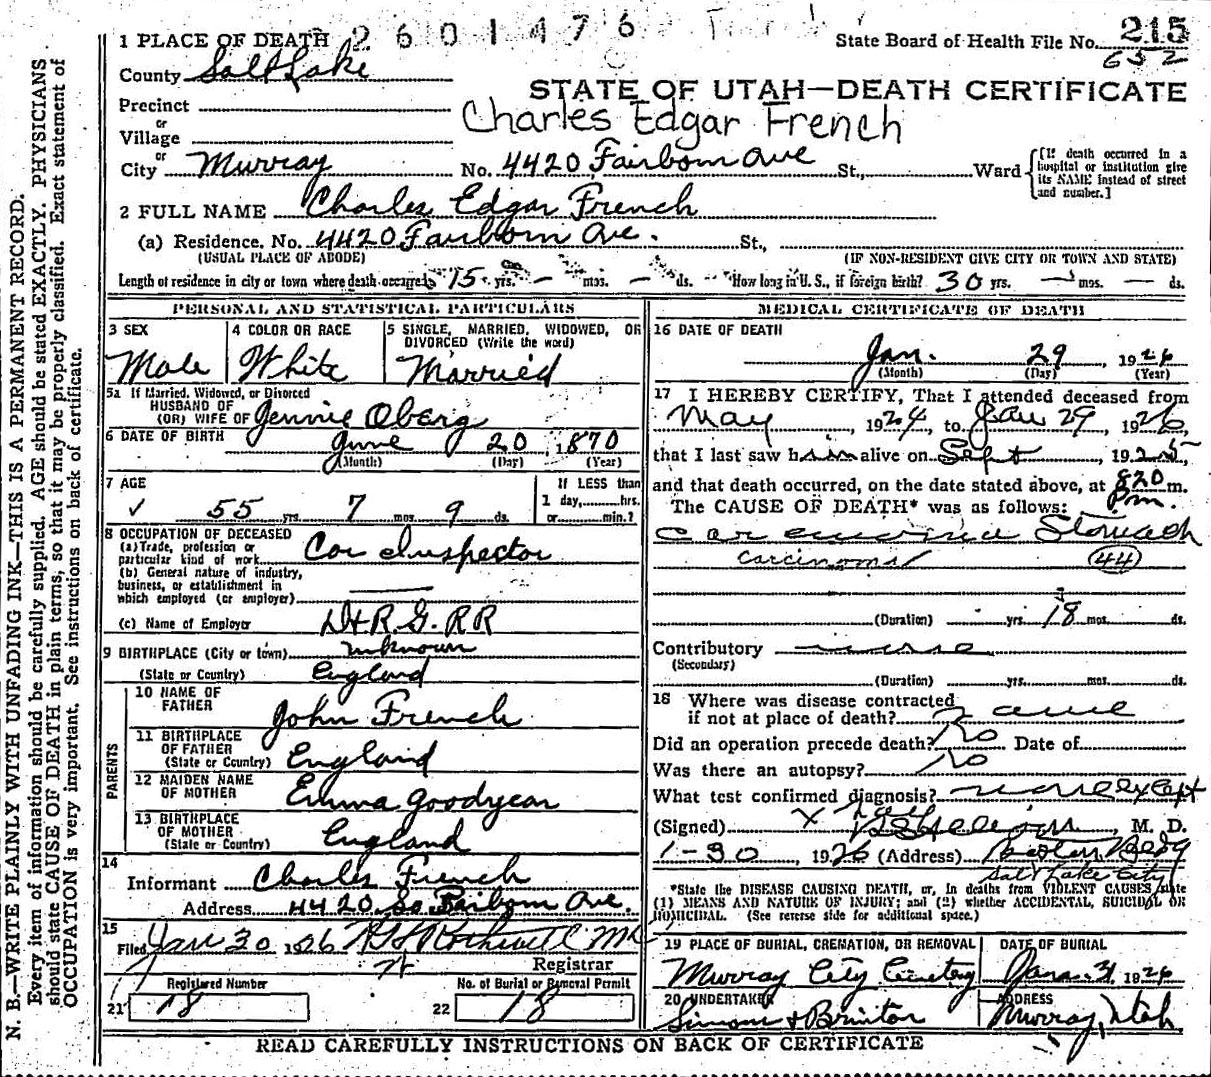 2601476
State Board of Health File No. 215
652
1 PLACE OF DEATH
County Salt Lake
STATE OF UTAH—DEATH CERTIFICATE
Precinct
or
Village
Charles Edgar French
or
City Murray No. 4420 Fairbom Ave St., Ward
[If death occurred in a hospital or institution give its NAME instead of street and number.]
2 FULL NAME Charles Edgar French
(a) Residence. No. 4420 Fairbom Ave. St.,
(USUAL PLACE OF ABODE) (IF NON-RESIDENT GIVE CITY OR TOWN AND STATE)
Length of residence in city or town where death occurred 15 yrs. — mos. — ds. How long in U. S., if foreign birth? 30 yrs. — mos. — ds.
PERSONAL AND STATISTICAL PARTICULARS
3 SEX
Male
4 COLOR OR RACE
White
5 SINGLE, MARRIED, WIDOWED, OR DIVORCED (Write the word)
Married
5a If Married, Widowed, or Divorced
HUSBAND OF
(OR) WIFE OF Jennie Oberg
6 DATE OF BIRTH June 20, 1870
(Month) (Day) (Year)
7 AGE
✓ 55 yrs. 7 mos. 9 ds.
If LESS than
1 day,......hrs.
or......min.?
8 OCCUPATION OF DECEASED
(a) Trade, profession or
particular kind of work Car Inspector
(b) General nature of industry,
business, or establishment in
which employed (or employer)
(c) Name of Employer D+R.G. RR
9 BIRTHPLACE (City or town) unknown
(State or Country) England
PARENTS
10 NAME OF FATHER John French
11 BIRTHPLACE OF FATHER (State or Country) England
12 MAIDEN NAME OF MOTHER Emma Goodyear
13 BIRTHPLACE OF MOTHER (State or Country) England
14
Informant Charles French
Address 4420 So Fairbom Ave.
15
Filed Jan 30 1926
Registrar
Registered Number
21 18
No. of Burial or Removal Permit
22 18
MEDICAL CERTIFICATE OF DEATH
16 DATE OF DEATH
Jan. 29 1926
(Month) (Day) (Year)
17 I HEREBY CERTIFY, That I attended deceased from
May, 1924, to Jan 29, 1926,
that I last saw him alive on Sept, 1925,
and that death occurred, on the date stated above, at 820 m.
Pm.
The CAUSE OF DEATH* was as follows:
Stomach
carcinoma (44)
(Duration) yrs. 18 mos. ds.
Contributory none
(Secondary)
(Duration) yrs. mos. ds.
18 Where was disease contracted
if not at place of death?
Did an operation precede death? No Date of
Was there an autopsy? No
What test confirmed diagnosis? except
(Signed) , M. D.
1-30, 1926 (Address) Boston Bldg
Salt Lake City
*State the DISEASE CAUSING DEATH, or, in deaths from VIOLENT CAUSES, state
(1) MEANS AND NATURE OF INJURY; and (2) whether ACCIDENTAL, SUICIDAL OR
HOMICIDAL. (See reverse side for additional space.)
19 PLACE OF BURIAL, CREMATION, OR REMOVAL
Murray City Cemetery
DATE OF BURIAL
Jan. 31 1926
20 UNDERTAKER
Simons + Brinton
ADDRESS
Murray, Utah
READ CAREFULLY INSTRUCTIONS ON BACK OF CERTIFICATE
N. B.—WRITE PLAINLY WITH UNFADING INK—THIS IS A PERMANENT RECORD.
Every item of information should be carefully supplied. AGE should be stated EXACTLY. PHYSICIANS
should state CAUSE OF DEATH in plain terms, so that it may be properly classified. Exact statement of
OCCUPATION is very important. See instructions on back of certificate.